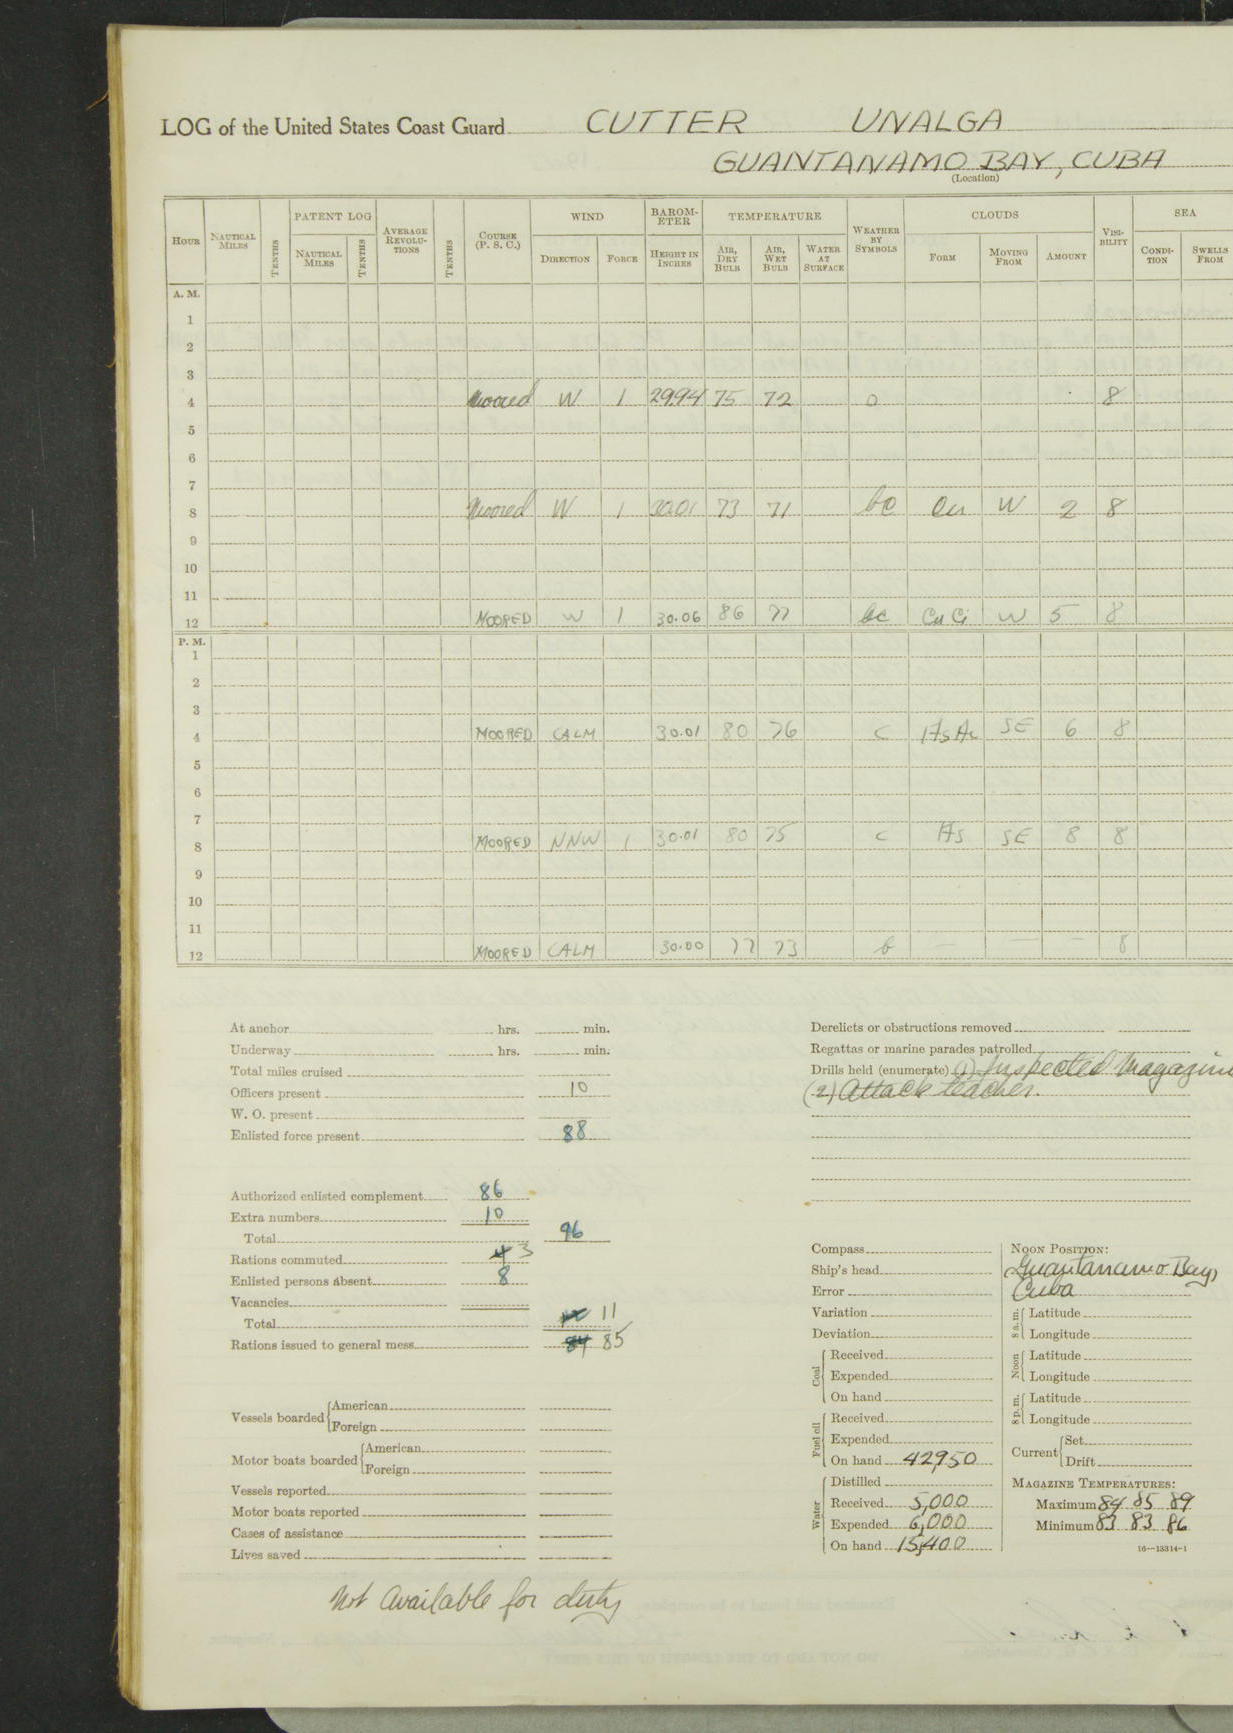 LOG of the United States Coast Guard CUTTER UNALGA
GUANTANAMO BAY, CUBA
(Location)
HOUR NAUTICAL MILES TENTHS PATENT LOG NAUTICAL MILES TENTHS AVERAGE REVOLU-TIONS TENTHS COURSE (P. S. C.) WIND DIRECTION FORCE BAROM-ETER HEIGHT IN INCHES TEMPERATURE AIR, DRY BULB AIR, WET BULB WATER AT SURFACE WEATHER BY SYMBOLS CLOUDS FORM MOVING FROM AMOUNT VISI-BILITY SEA CONDI-TION SWELLS FROM
A. M.
1
2
3
4 Moored W 1 29.94 75 72 o 8
5
6
7
8 Moored W 1 30.01 73 71 bc Cu W 2 8
9
10
11
12 MOORED W 1 30.06 86 77 bc Cu Ci W 5 8
P. M.
1
2
3
4 MOORED CALM 30.01 80 76 c As Ac SE 6 8
5
6
7
8 MOORED NNW 1 30.01 80 75 c As SE 8 8
9
10
11
12 MOORED CALM 30.00 77 73 b — — — 8
At anchor hrs. min.
Underway hrs. min.
Total miles cruised
Officers present 10
W. O. present
Enlisted force present 88
Authorized enlisted complement 86
Extra numbers 10
Total 96
Rations commuted 4 3
Enlisted persons absent 8
Vacancies
Total 11
Rations issued to general mess 84 85
Vessels boarded American
Foreign
Motor boats boarded American
Foreign
Vessels reported
Motor boats reported
Cases of assistance
Lives saved
Not available for duty
Derelicts or obstructions removed
Regattas or marine parades patrolled
Drills held (enumerate) (1) Inspected Magazine
(2) Attack teacher.
Compass
Ship's head
Error
Variation
Deviation
Coal Received
Expended
On hand
Fuel oil Received
Expended
On hand 42,950
Water Distilled
Received 5,000
Expended 6,000
On hand 15,400
NOON POSITION:
Guantanamo Bay,
Cuba
8 a.m. Latitude
Longitude
Noon Latitude
Longitude
8 p.m. Latitude
Longitude
Current Set
Drift
MAGAZINE TEMPERATURES:
Maximum 84 85 89
Minimum 83 83 86
16—13314-1